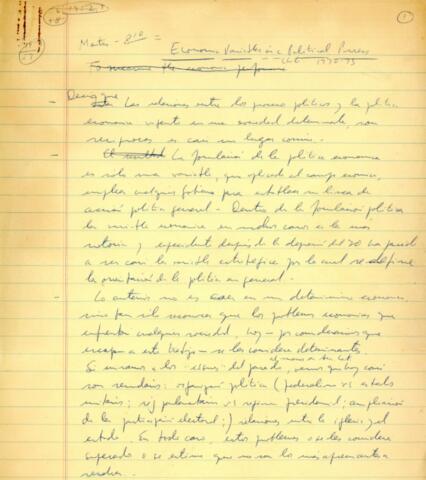 1
Economic Variables in a Political Process
1970-73
Decir que
Las relaciones entre los procesos políticos y la política
económica vigente en una sociedad determinada, son
recíprocas es casi un lugar común.
- La formulación de la política económica
es sólo una variable, que aplicada al campo económico,
emplea cualquier gobierno para establecer su línea de
acción política general - Dentro de la formulación política
la variable económica en muchos casos es la más
notoria y especialmente después de la depresión del 30 ha pasado
a ser casi la variable estratégica por la cual se define
la orientación de la política en general.
- Lo anterior no es caer en un determinismo económico,
sino tan sólo reconocer que los problemas económicos que
enfrenta cualquier sociedad, hoy - por consideraciones que
escapan a este trabajo - se les considera determinantes.
Si vamos a los issues del pasado, vemos que hoy casi
al menos en
son secundarios: organización política (federalismo vs estados
unitarios; rég parlamentario vs régimen presidencial; ampliación
de la participación electoral;) relaciones entre la iglesia y el
estado. En todo caso, estos problemas o se les considera
superados o se estima que no son los más apremiantes a
resolver.